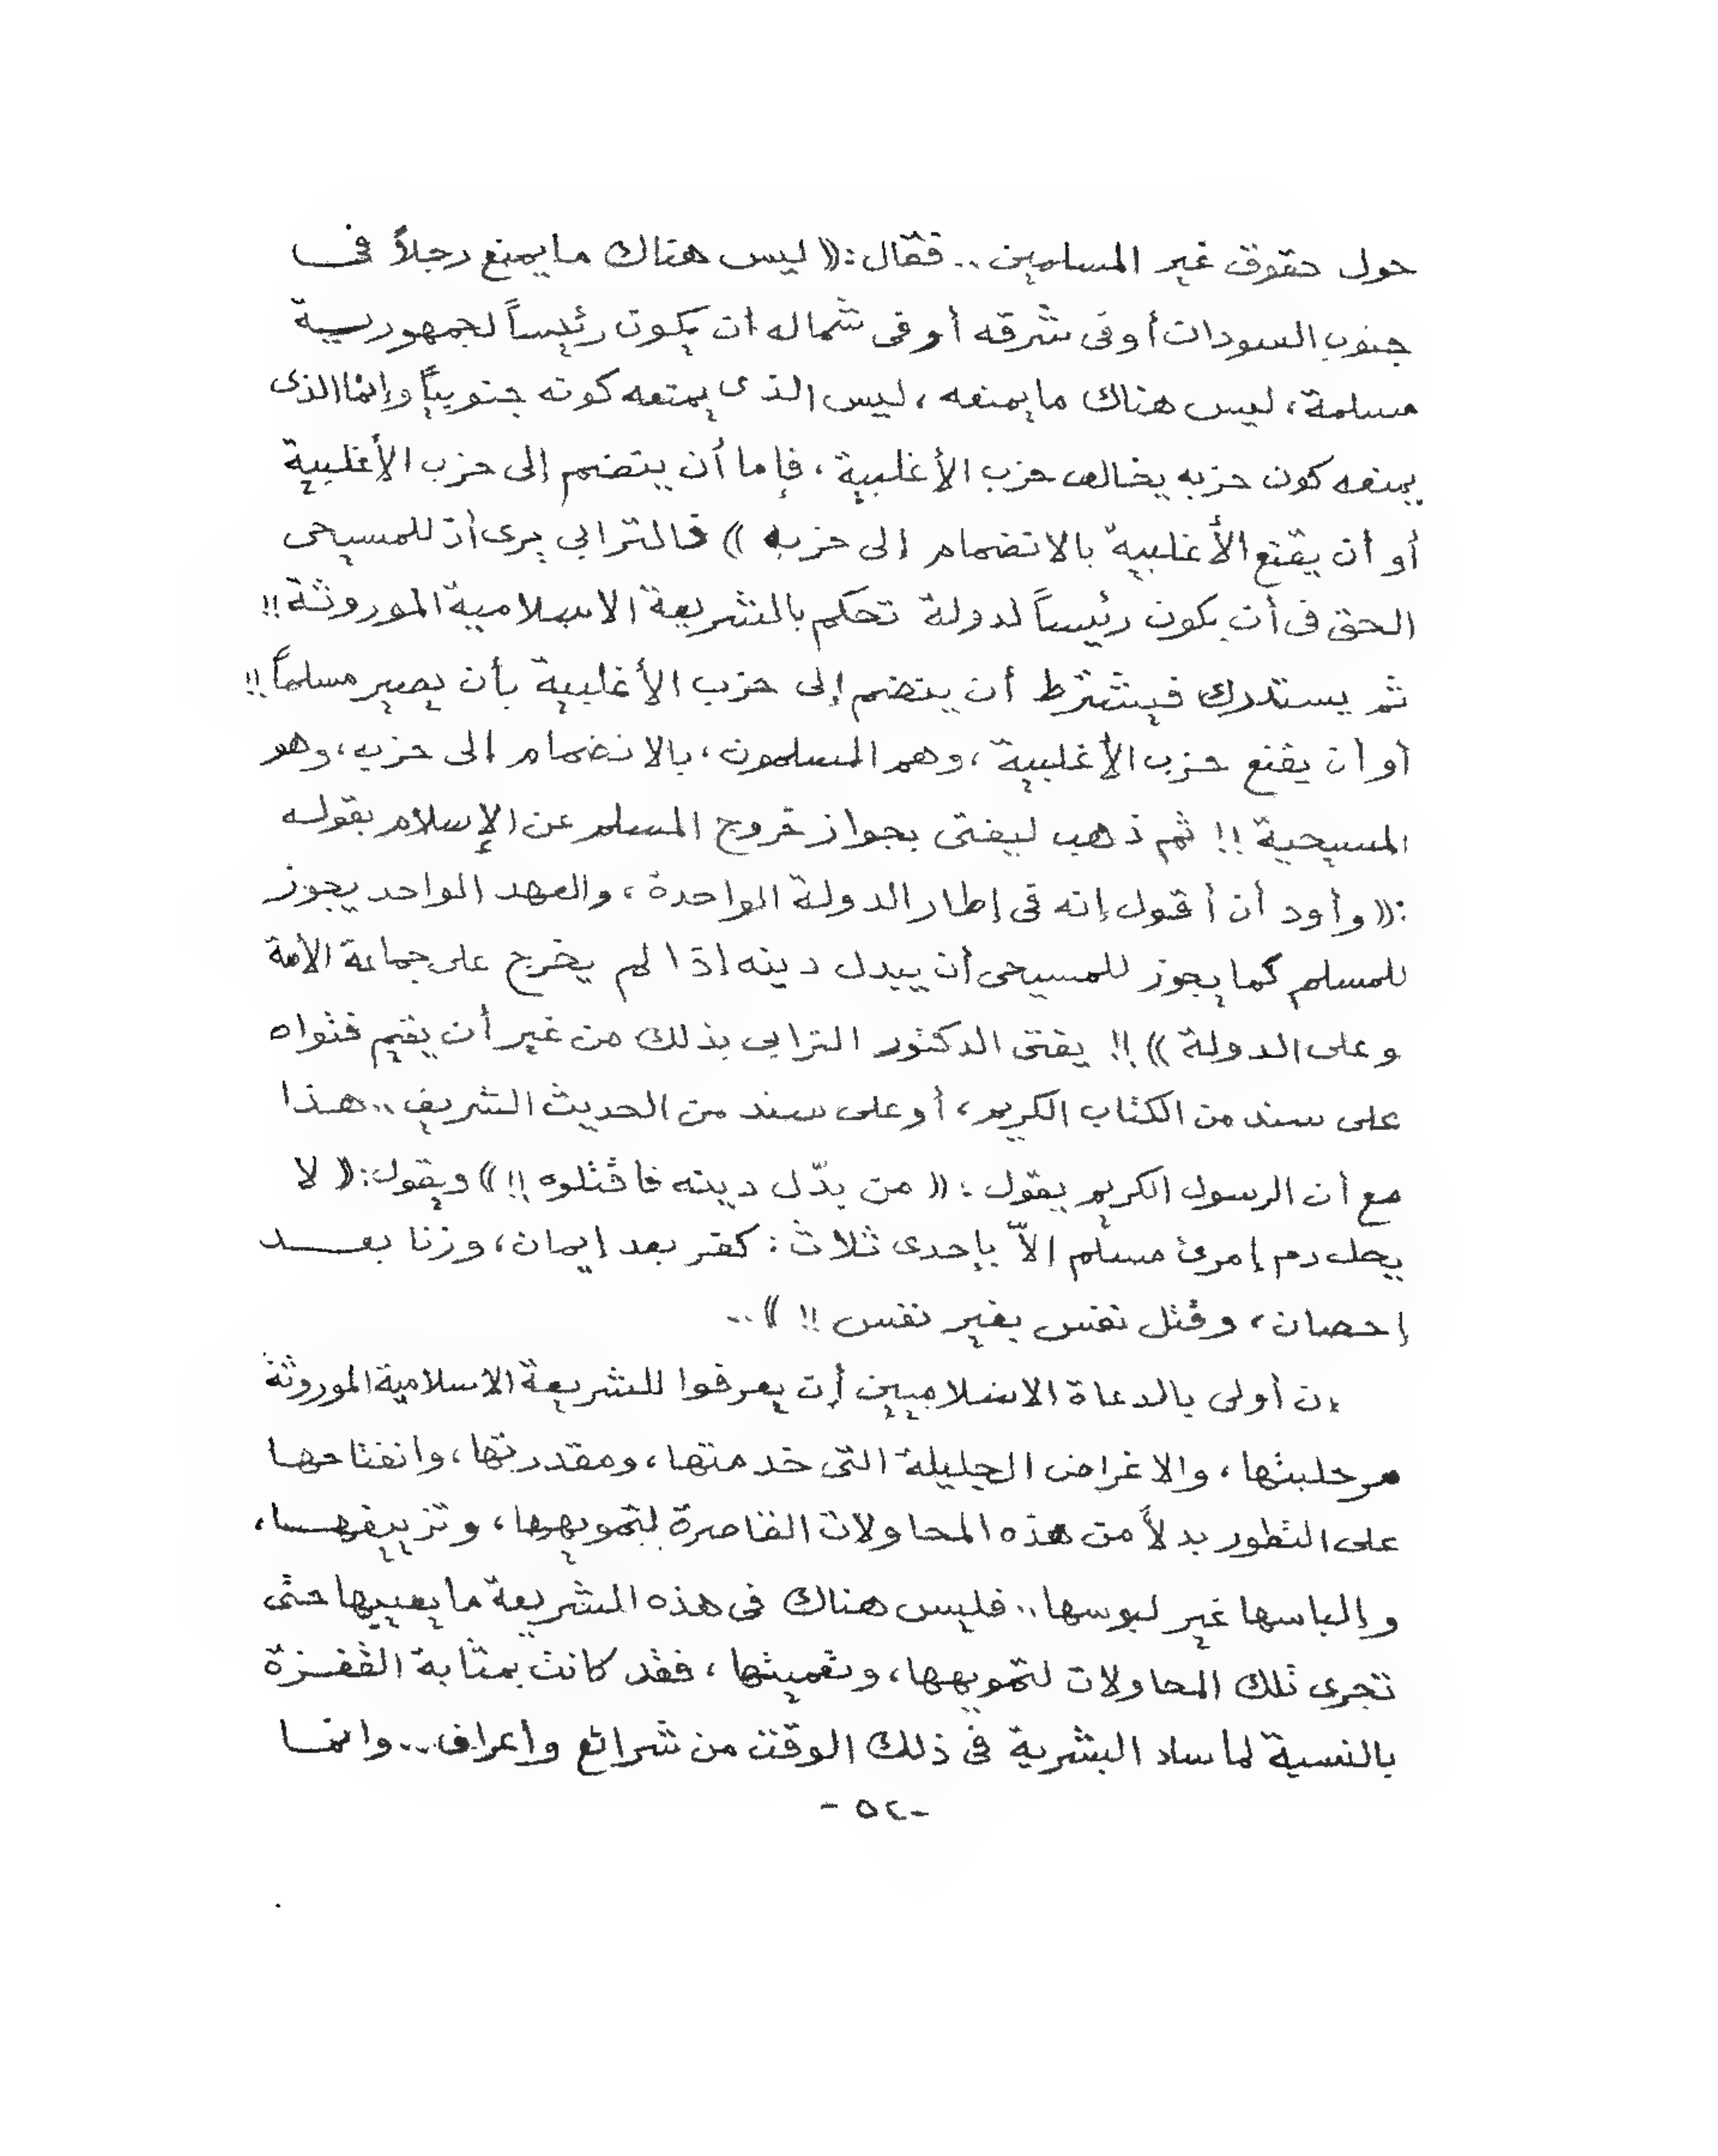 حول حقوق غير المسلمين.. فقال: (( ليس هناك ما يمنع رجلاً فى
جنوب السودان أو فى شرقه أو فى شماله ان يكون رئيساً لجمهورية
مسلمة، ليس هناك ما يمنعه، ليس الذى يمنعه كونه جنوبياً وإنما الذى
يمنعه كون حزبه يخالف حزب الأغلبية، فإما أن ينضم إلى حزب الأغلبية
أو أن يقنع الأغلبية بالانضمام الى حزبه )) فالترابي يرى أن للمسيحى
الحق فى أن يكون رئيساً لدولة تحكم بالشريعة الاسلامية الموروثة!!
ثم يستدرك فيشترط أن ينضم إلى حزب الأغلبية بأن يصير مسلماً!!
أو أن يقنع حزب الأغلبية، وهم المسلمون، بالانضمام الى حزبه، وهو
المسيحية!! ثم ذهب ليفتى بجواز خروج المسلم عن الإسلام بقوله
:(( وأود أن أقول إنه فى إطار الدولة الواحدة، والعهد الواحد يجوز
للمسلم كما يجوز للمسيحى أن يبدل دينه إذا لم يخرج على جماعة الأمة
وعلى الدولة ))!! يفتى الدكتور الترابى بذلك من غير أن يقيم فتواه
على سند من الكتاب الكريم، أو على سند من الحديث الشريف.. هذا
مع أن الرسول الكريم يقول: (( من بدّل دينه فاقتلوه!! )) ويقول: (( لا
يحل دم إمرئ مسلم الاّ بإحدى ثلاث: كفر بعد إيمان، وزنا بعد
إحصان، وقتل نفس بغير نفس!! ))..
إن أولى بالدعاة الاسلاميين أن يعرفوا للشريعة الاسلامية الموروثة
مرحليتها، والاغراض الجليلة التى خدمتها، ومقدرتها، وانفتاحها
على التطور بدلاً من هذه المحاولات القاصرة لتمويهها، وتزييفها،
وإلباسها غير لبوسها.. فليس هناك فى هذه الشريعة ما يعيبها حتى
تجرى تلك المحاولات لتمويهها، وتعميتها، فقد كانت بمثابة القفزة
بالنسبة لما ساد البشرية فى ذلك الوقت من شرائع وأعراف.. وانما
-٥٢-